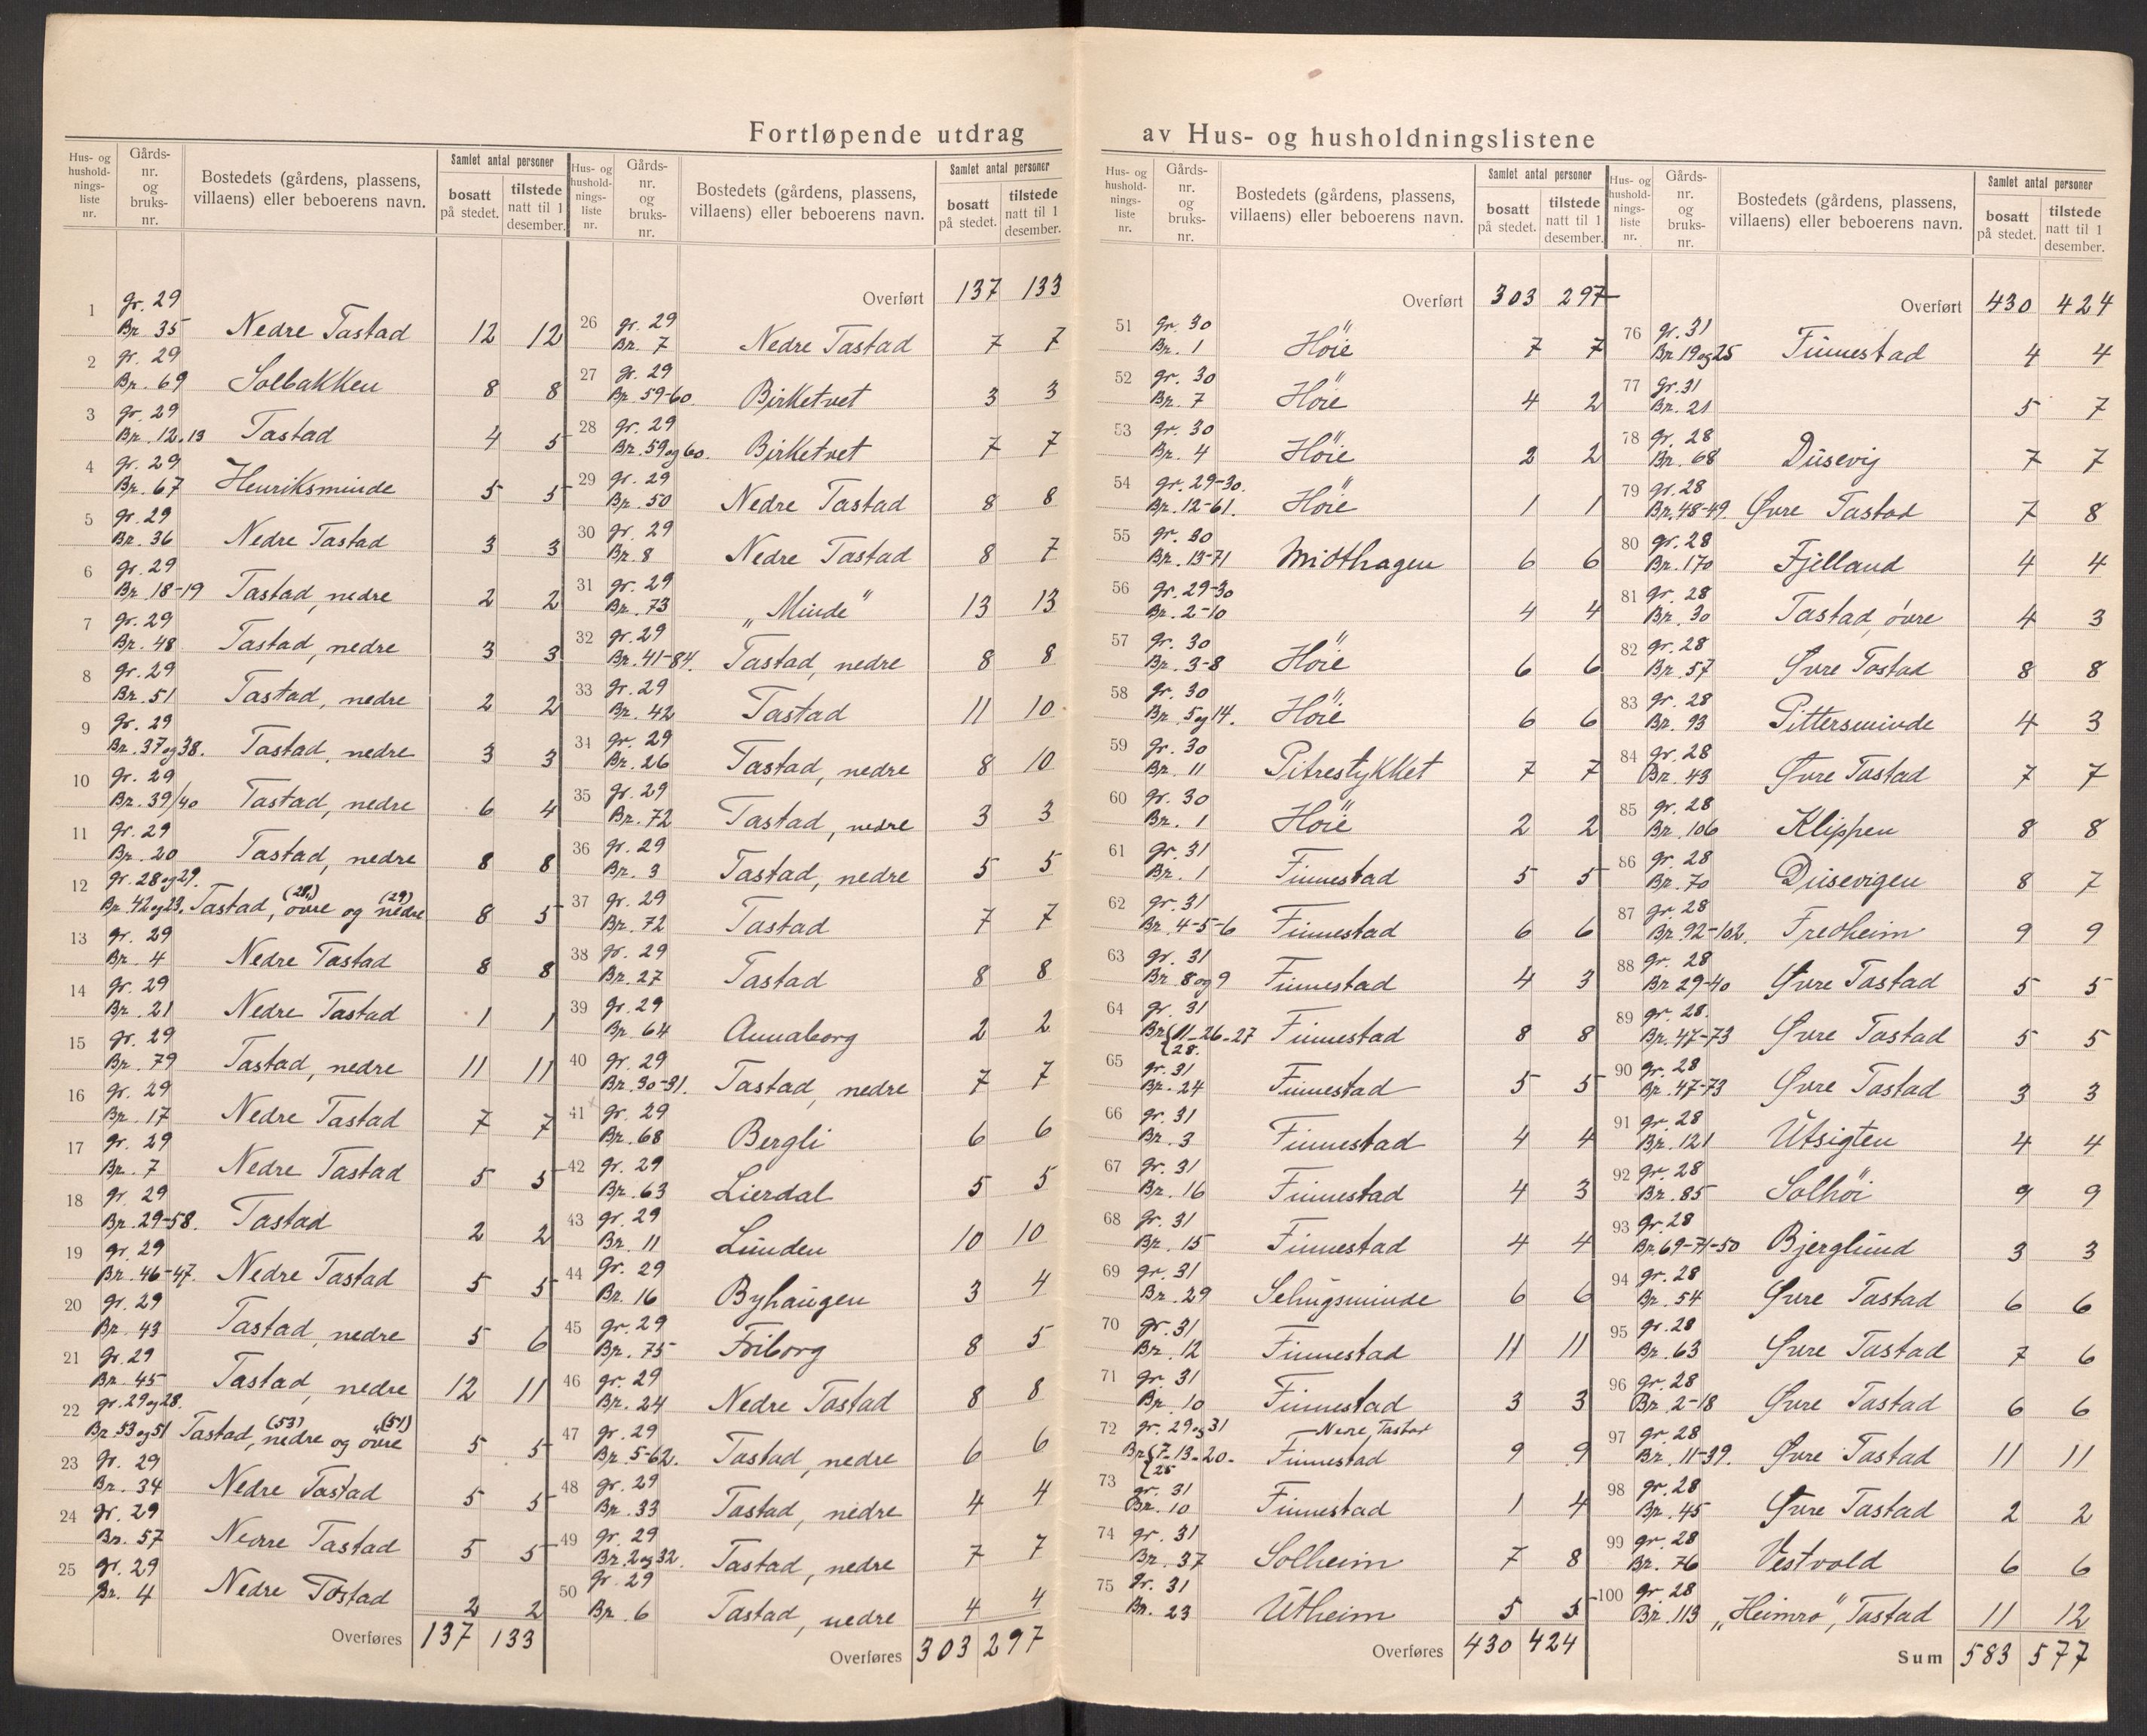 Fortløpende utdrag av Hus- og husholdningslistene
Hus- og husholdningsliste nr. | Gårds-nr. og bruks-nr. | Bostedets (gårdens, plassens, villaens) eller beboerens navn. | Samlet antal personer: bosatt på stedet. | tilstede natt til 1 desember.
1 gr. 29 Br. 35 Nedre Tastad 12 12
2 gr. 29 Br. 69 Solbakken 8 8
3 gr. 29 Br. 12.13 Tastad 4 5
4 gr. 29 Br. 67 Henriksminde 5 5
5 gr. 29 Br. 36 Nedre Tastad 3 3
6 gr. 29 Br. 18-19 Tastad, nedre 2 2
7 gr. 29 Br. 48 Tastad, nedre 3 3
8 gr. 29 Br. 51 Tastad, nedre 2 2
9 gr. 29 Br. 37 og 38. Tastad, nedre 3 3
10 gr. 29 Br. 39/40 Tastad, nedre 6 4
11 gr. 29 Br. 20 Tastad, nedre 8 8
12 gr. 28 og 29. Br. 42 og 23. Tastad, øvre (28.) og nedre (29) 8 5
13 gr. 29 Br. 4 Nedre Tastad 8 8
14 gr. 29 Br. 21 Nedre Tastad 1 1
15 gr. 29 Br. 79 Tastad, nedre 11 11
16 gr. 29 Br. 17 Nedre Tastad 7 7
17 gr. 29 Br. 7 Nedre Tastad 5 5
18 gr. 29 Br. 29-58. Tastad 2 2
19 gr. 29 Br. 46-47. Nedre Tastad 5 5
20 gr. 29 Br. 43 Tastad, nedre 5 6
21 gr. 29 Br. 45 Tastad, nedre 12 11
22 gr. 29 og 28. Br. 53 og 51 Tastad, nedre (53) og øvre (51) 5 5
23 gr. 29 Br. 34 Nedre Tastad 5 5
24 gr. 29 Br. 57 Nedre Tastad 5 5
25 gr. 29 Br. 4 Nedre Tastad 2 2
Overføres 137 133
Hus- og husholdningsliste nr. | Gårds-nr. og bruks-nr. | Bostedets (gårdens, plassens, villaens) eller beboerens navn. | Samlet antal personer: bosatt på stedet. | tilstede natt til 1 desember.
Overført 137 133
26 gr. 29 Br. 7 Nedre Tastad 7 7
27 gr. 29 Br. 59-60. Birketvet 3 3
28 gr. 29 Br. 59 og 60. Birketvet 7 7
29 gr. 29 Br. 50 Nedre Tastad 8 8
30 gr. 29 Br. 8 Nedre Tastad 8 7
31 gr. 29 Br. 73 „Minde" 13 13
32 gr. 29 Br. 41-84. Tastad, nedre 8 8
33 gr. 29 Br. 42 Tastad 11 10
34 gr. 29 Br. 26 Tastad, nedre 8 10
35 gr. 29 Br. 72 Tastad, nedre 3 3
36 gr. 29 Br. 3 Tastad, nedre 5 5
37 gr. 29 Br. 72 Tastad 7 7
38 gr. 29 Br. 27 Tastad 8 8
39 gr. 29 Br. 64 Annaborg 2 2
40 gr. 29 Br. 30-31. Tastad, nedre 7 7
41 gr. 29 Br. 68 Bergli 6 6
42 gr. 29 Br. 63 Lierdal 5 5
43 gr. 29 Br. 11 Lunden 10 10
44 gr. 29 Br. 16 Byhaugen 3 4
45 gr. 29 Br. 75 Friborg 8 5
46 gr. 29 Br. 24 Nedre Tastad 8 8
47 gr. 29 Br. 5-62. Tastad, nedre 6 6
48 gr. 29 Br. 33 Tastad, nedre 4 4
49 gr. 29 Br. 2 og 32. Tastad, nedre 7 7
50 gr. 29 Br. 6 Tastad, nedre 4 4
Overføres 303 297
Hus- og husholdningsliste nr. | Gårds-nr. og bruks-nr. | Bostedets (gårdens, plassens, villaens) eller beboerens navn. | Samlet antal personer: bosatt på stedet. | tilstede natt til 1 desember.
Overført 303 297
51 gr. 30 Br. 1 Höie 7 7
52 gr. 30 Br. 7 Höie 4 2
53 gr. 30 Br. 4 Höie 2 2
54 gr. 29-30. Br. 12-61. Höie 1 1
55 gr. 30 Br. 13-71 Midthagen 6 6
56 gr. 29-30 Br. 2-10 4 4
57 gr. 30 Br. 3-8 Höie 6 6
58 gr. 30 Br. 5 og 14. Höie 6 6
59 gr. 30 Br. 11 Pitrestykket 7 7
60 gr. 30 Br. 1 Höie 2 2
61 gr. 31 Br. 1 Finnestad 5 5
62 gr. 31 Br. 4-5-6 Finnestad 6 6
63 gr. 31 Br. 8 og 9 Finnestad 4 3
64 gr. 31 Br. 11-26-27 28. Finnestad 8 8
65 gr. 31 Br. 24 Finnestad 5 5
66 gr. 31 Br. 3 Finnestad 4 4
67 gr. 31 Br. 16 Finnestad 4 3
68 gr. 31 Br. 15 Finnestad 4 4
69 gr. 31 Br. 29 Selugsminde 6 6
70 gr. 31 Br. 12 Finnestad 11 11
71 gr. 31 Br. 10 Finnestad 3 3
72 gr. 29 og 31 Br. 7-13-20- 25 Nedre Tastad Finnestad 9 9
73 gr. 31 Br. 10 Finnestad 1 4
74 gr. 31 Br. 37 Solheim 7 8
75 gr. 31 Br. 23 Utheim 5 5
Overføres 430 424
Hus- og husholdningsliste nr. | Gårds-nr. og bruks-nr. | Bostedets (gårdens, plassens, villaens) eller beboerens navn. | Samlet antal personer: bosatt på stedet. | tilstede natt til 1 desember.
Overført 430 424
76 gr. 31 Br. 19 og 25 Finnestad 4 4
77 gr. 31 Br. 21 5 7
78 gr. 28 Br. 68 Dusevig 7 7
79 gr. 28 Br. 48-49. Øvre Tastad 7 8
80 gr. 28 Br. 170 Fjelland 4 4
81 gr. 28 Br. 30 Tastad, øvre 4 3
82 gr. 28 Br. 57 Øvre Tastad 8 8
83 gr. 28 Br. 93 Pittersminde 4 3
84 gr. 28 Br. 43 Øvre Tastad 7 7
85 gr. 28 Br. 106 Klippen 8 8
86 gr. 28 Br. 70 Dusevigen 8 7
87 gr. 28 Br. 92-102. Fredheim 9 9
88 gr. 28 Br. 29-40 Øvre Tastad 5 5
89 gr. 28. Br. 47-73 Øvre Tastad 5 5
90 gr. 28 Br. 47-73 Øvre Tastad 3 3
91 gr. 28 Br. 121 Utsigten 4 4
92 gr. 28 Br. 85 Solhöi 9 9
93 gr. 28 Br. 69-71-50 Bjerglund 3 3
94 gr. 28 Br. 54 Øvre Tastad 6 6
95 gr. 28 Br. 63 Øvre Tastad 7 6
96 gr. 28 Br. 2-18 Øvre Tastad 6 6
97 gr. 28 Br. 11-39. Øvre Tastad 11 11
98 gr. 28 Br. 45 Øvre Tastad 2 2
99 gr. 28 Br. 76 Vestvold 6 6
100 gr. 28 Br. 113 „Heimro", Tastad 11 12
Sum 583 577